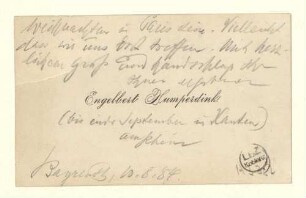 Weihnachten in Paris sein. Vielleicht
dass wir uns dort treffen. Mit herz-
lichem Gruß und Handschlag
Ihr
Engelbert Humperdink
(bis ende September in Xanten)
Bayreuth, 10. 8. 84